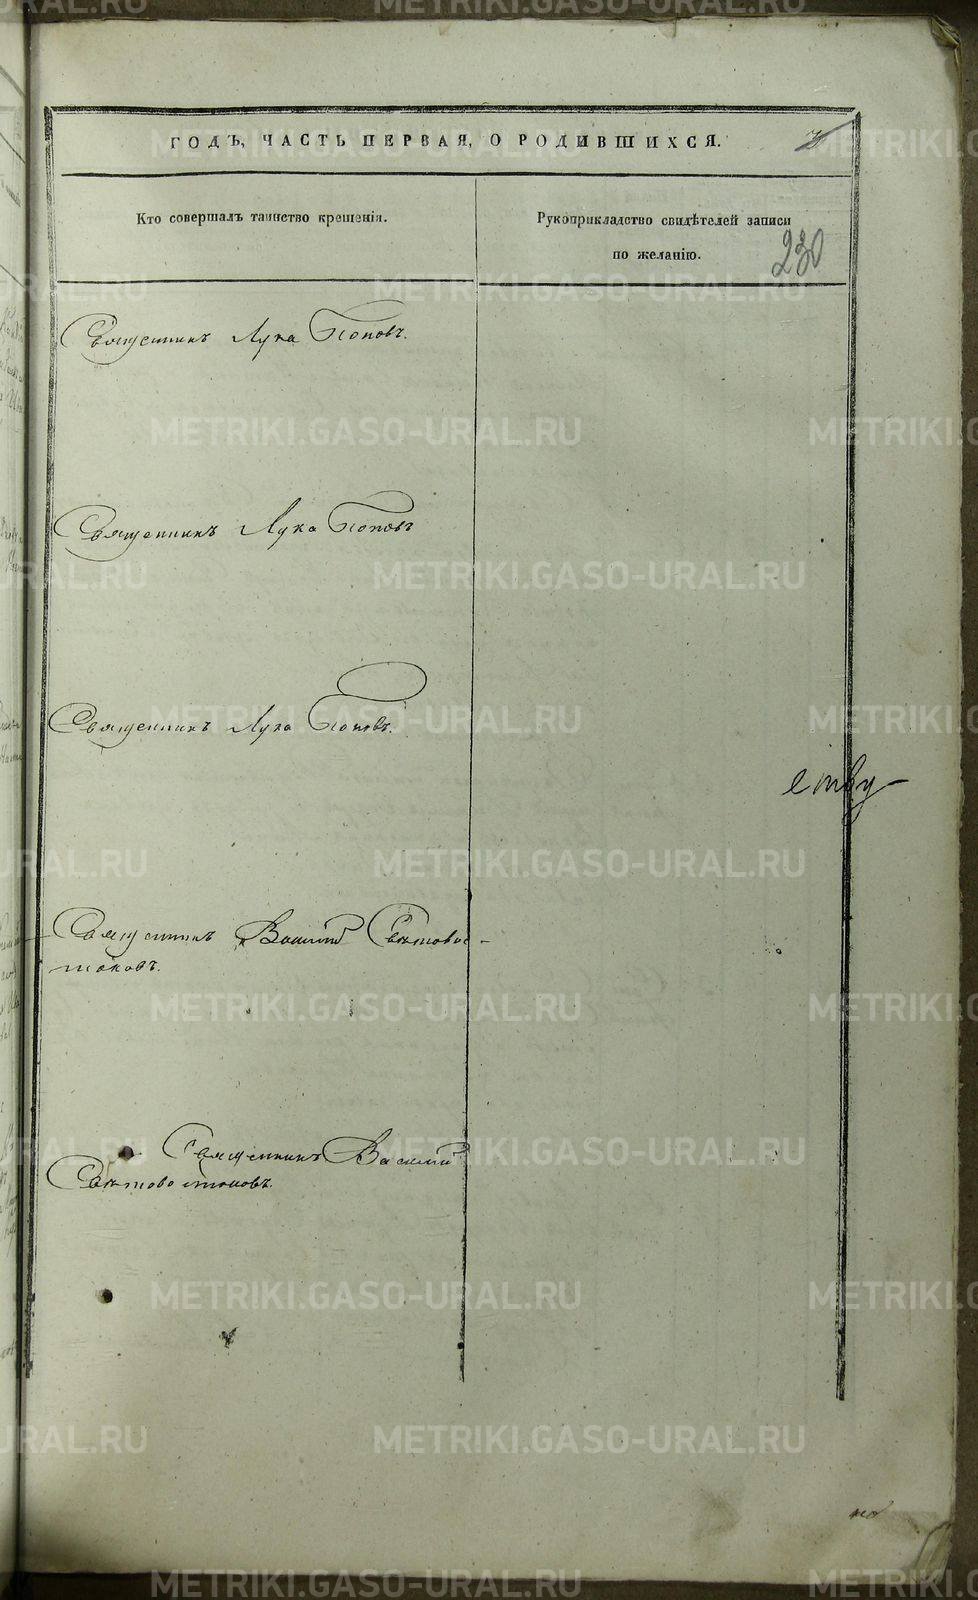 ГОДЪ, ЧАСТЬ ПЕРВАЯ, О РОДИВШИХСЯ.
Кто совершалъ таинство крещенія.
Рукоприкладство свидѣтелей записи
по желанію.
230
Священникъ Лука Поповъ.
Священникъ Лука Поповъ
Священникъ Лука Поповъ.
ству
Священникъ Василій Свѣтовос-
токовъ.
Священникъ Василій
Свѣтовостоковъ.
METRIKI.GASO-URAL.RU